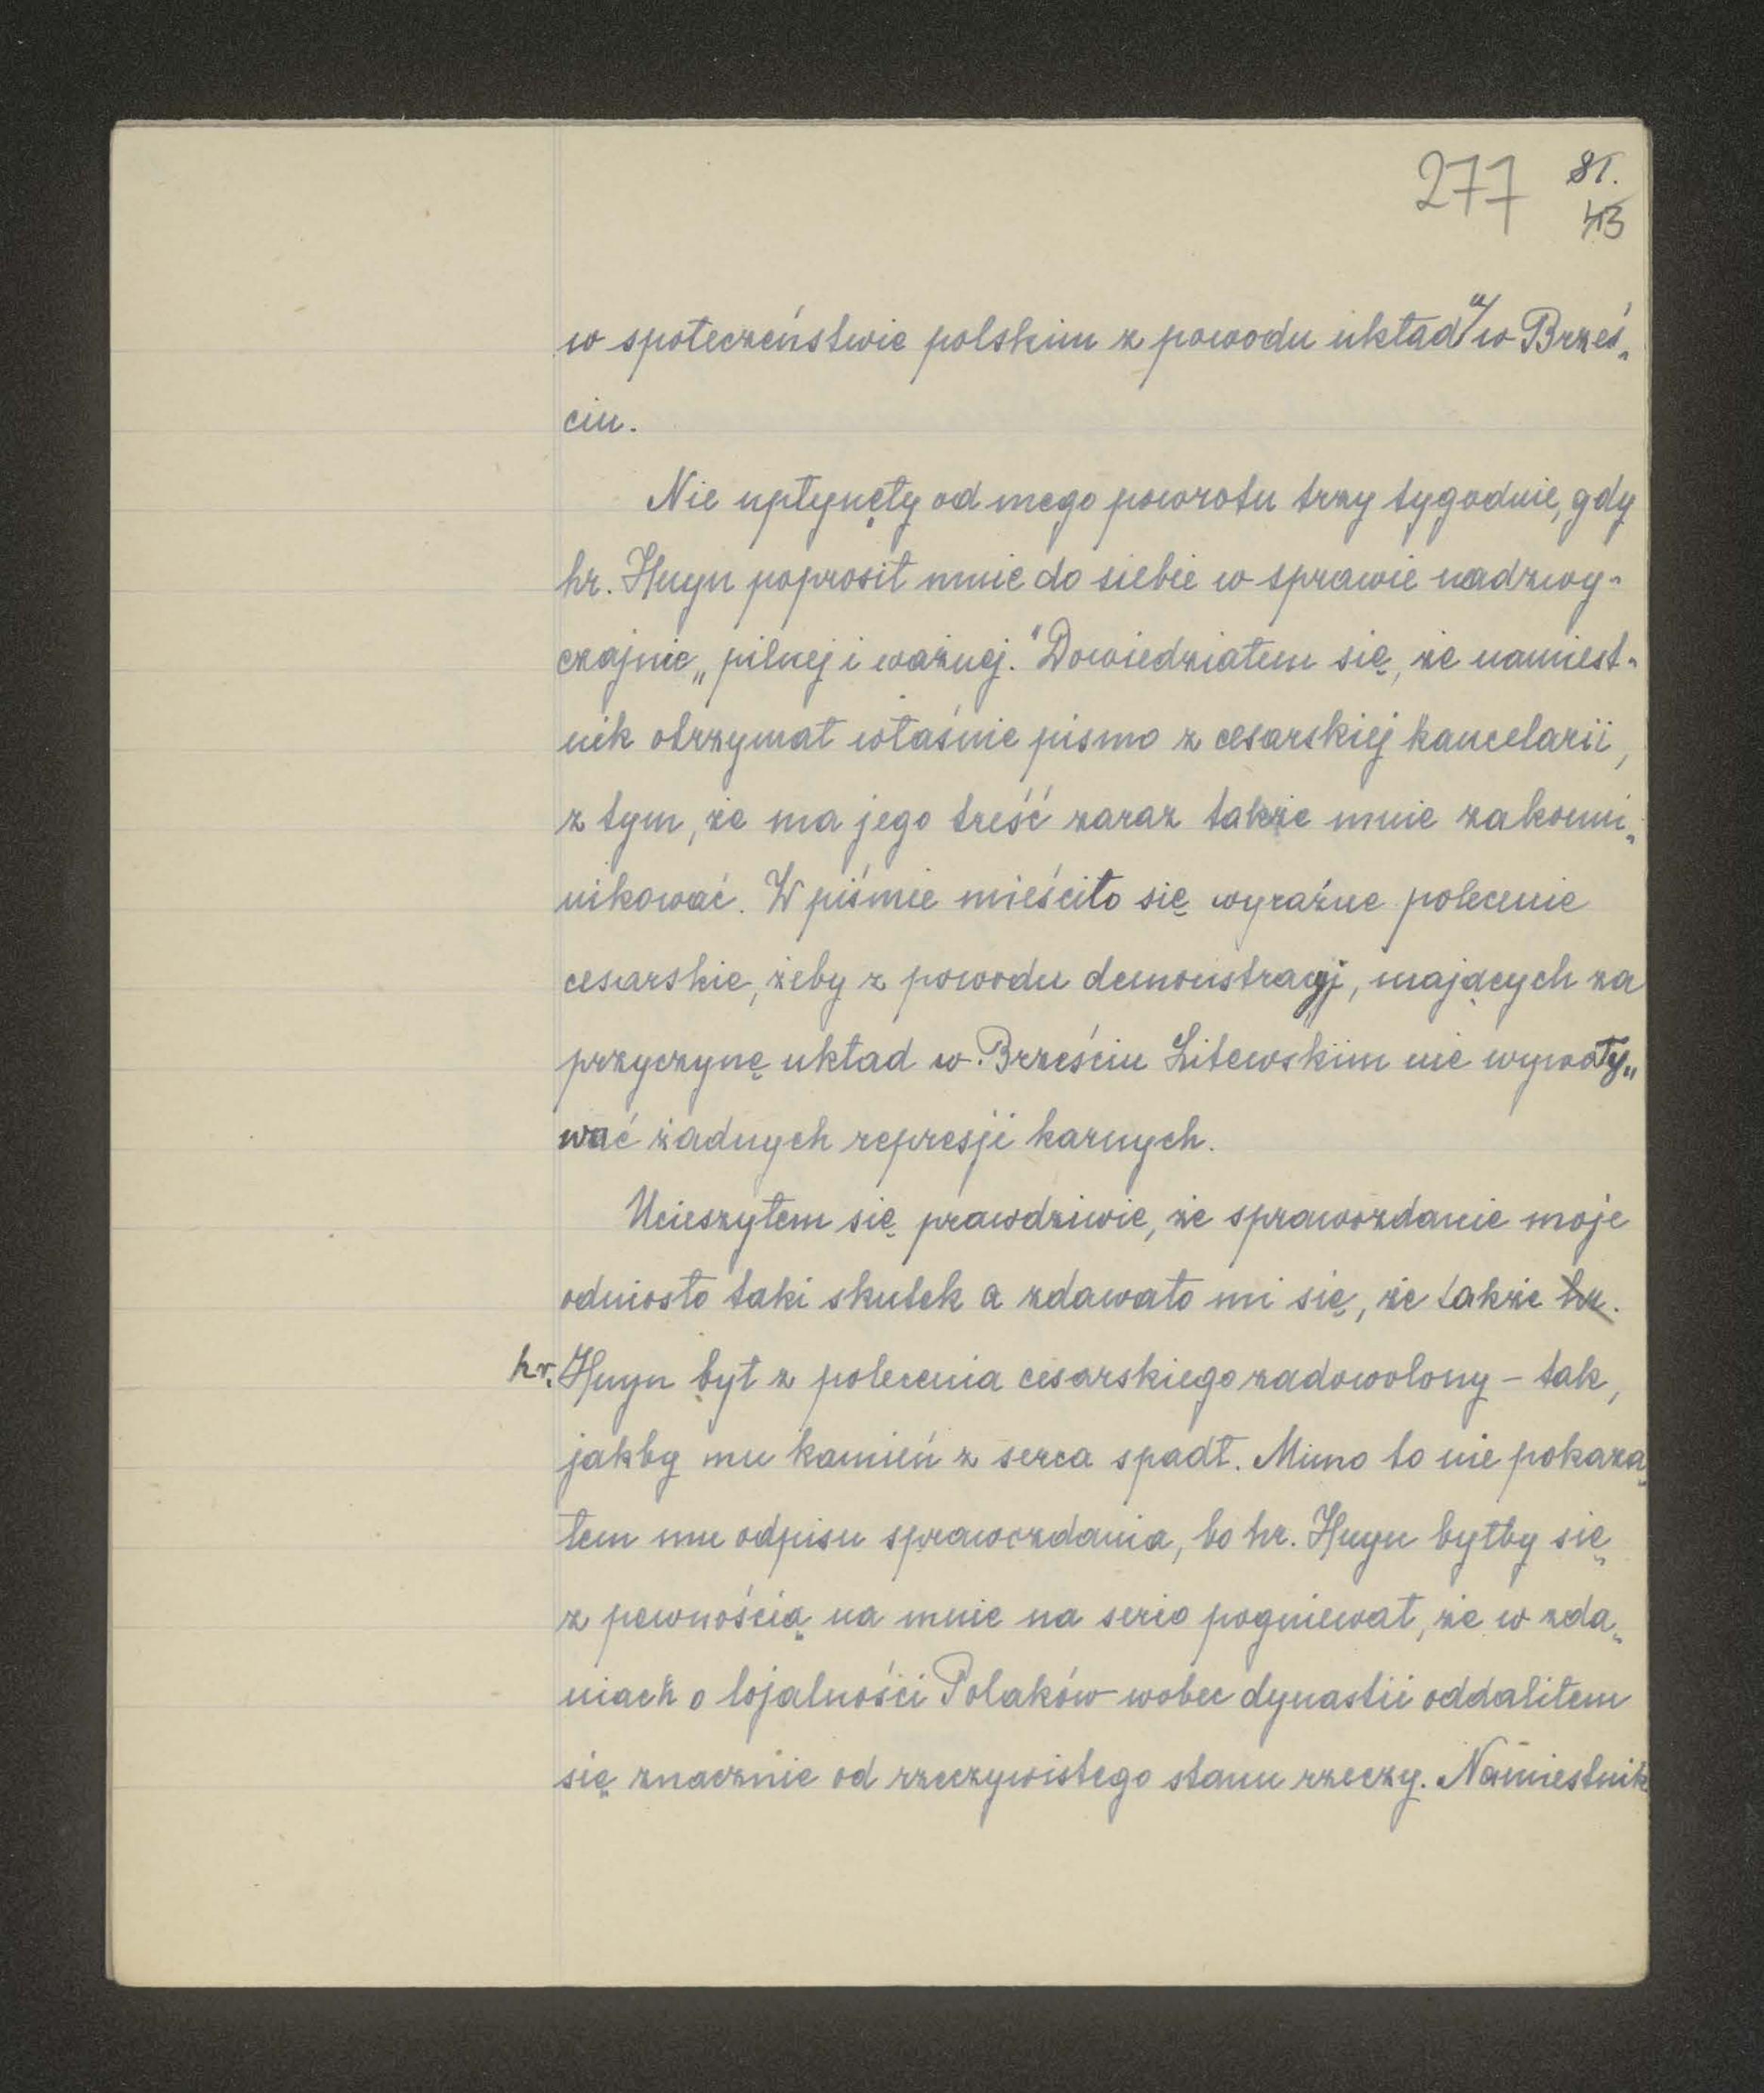 277 81.
43
w społeczeństwie polskim z powodu układu w Brześ-
ciu.
Nie upłynęły od mego powrotu trzy tygodnie, gdy
hr. Huyn poprosił mnie do siebie w sprawie nadzwy-
czajnie „pilnej i ważnej." Dowiedziałem się, że namiest-
nik otrzymał właśnie pismo z cesarskiej kancelarii,
z tym, że ma jego treść zaraz także mnie zakomu-
nikować. W piśmie mieściło się wyraźne polecenie
cesarskie, żeby z powodu demonstracyj, mających za
przyczynę układ w Brześciu Litewskim nie wywoły-
wać żadnych represji karnych.
Ucieszyłem się prawdziwie, że sprawozdanie moje
odniosło taki skutek a zdawało mi się, że także hr.
hr. Huyn był z polecenia cesarskiego zadowolony – tak,
jakby mu kamień z serca spadł. Mimo to nie pokaza-
łem mu odpisu sprawozdania, bo hr. Huyn byłby się
z pewnością na mnie na serio pogniewał, że w zda-
niach o lojalności Polaków wobec dynastii oddaliłem
się znacznie od rzeczywistego stanu rzeczy. Namiestnik